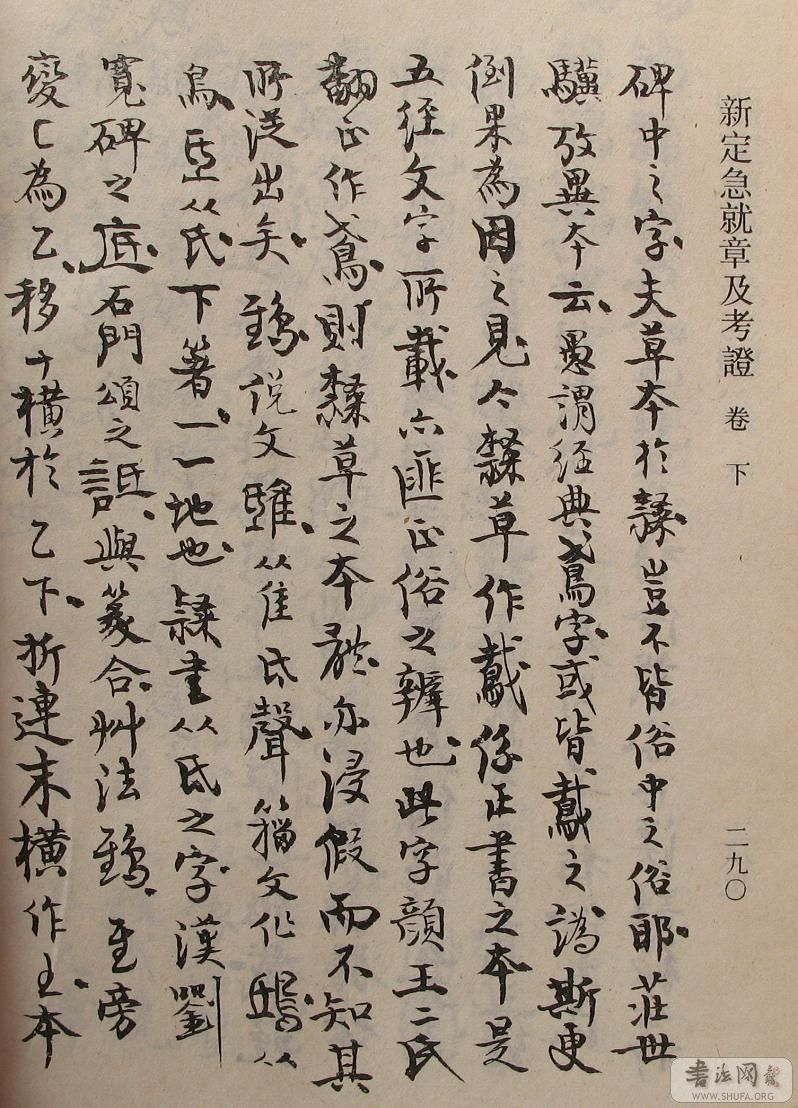 新定急就章及考證 卷下 二九〇
碑中之字夫草本於隸豈不皆俗中之俗耶莊世
驥攷異本云愚謂經典鳶字或皆䳒之譌斯更
倒果為因之見今隸草作䳒係正書之本是
五経文字所載亦匪正俗之辨也此字顏王二氏
翻正作鳶則隸草之本體亦浸假而不知其
所從出矣鵄說文雖从隹氏聲籀文作鴟从
鳥氐从氏下著一一地也隸書从氐之字漢劉
寬碑之底石門頌之詆與篆合艸法鵄至旁
變匸為乙移十橫於乙下折連末橫作主本
書法网
WWW.SHUFA.ORG